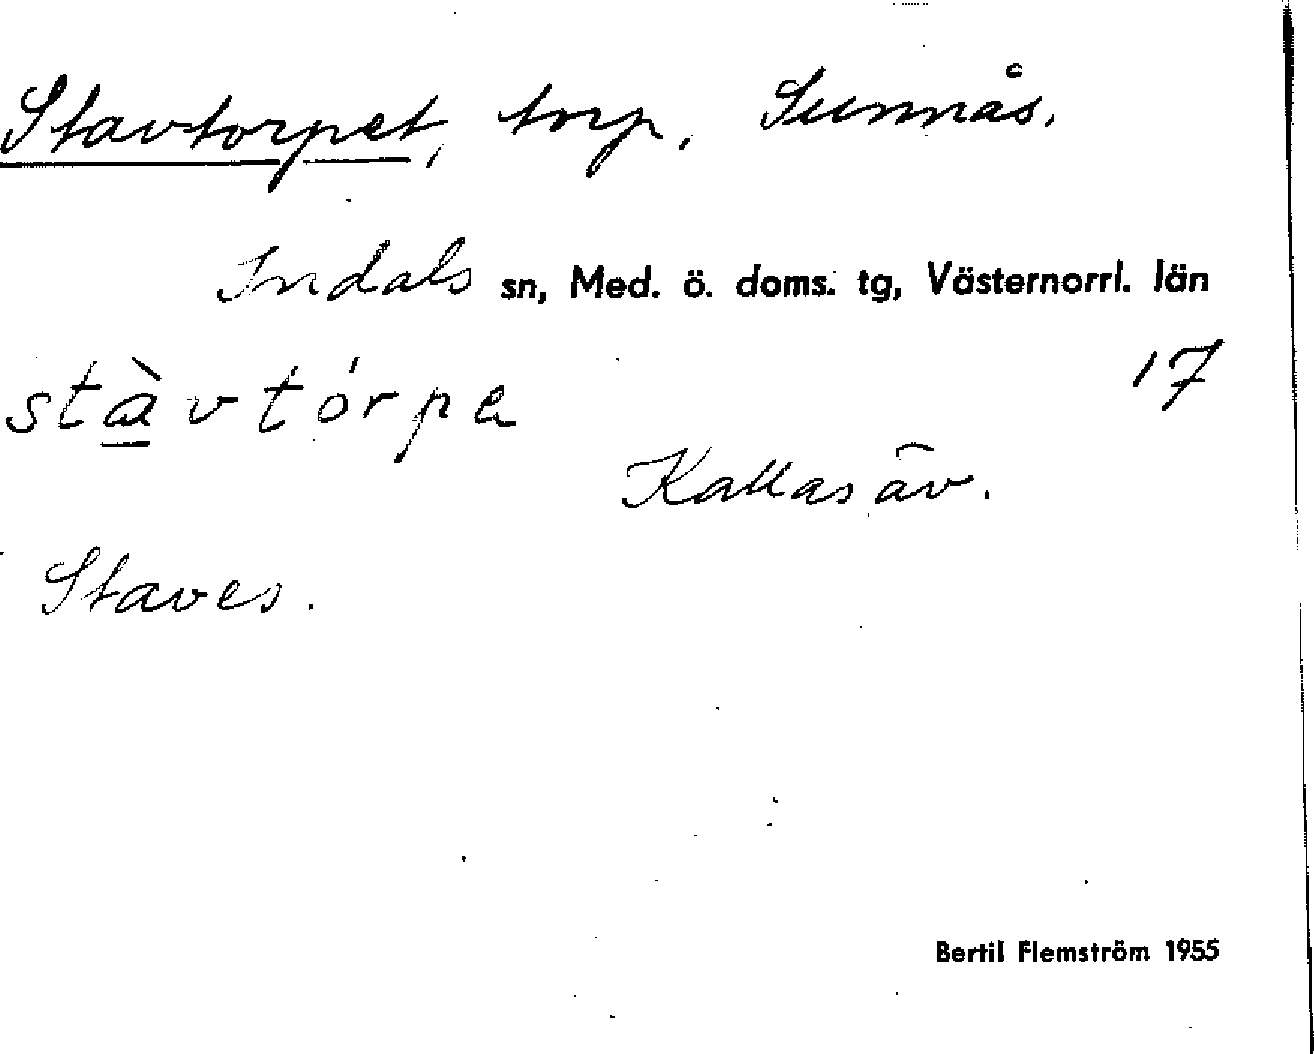 Stavtorpet, torp, Sunnås.
Indals sn, Med. ö. doms. tg, Västernorrl. län
stàvtórpe
17
Kallasäv.
Staves.
Bertil Flemström 1955